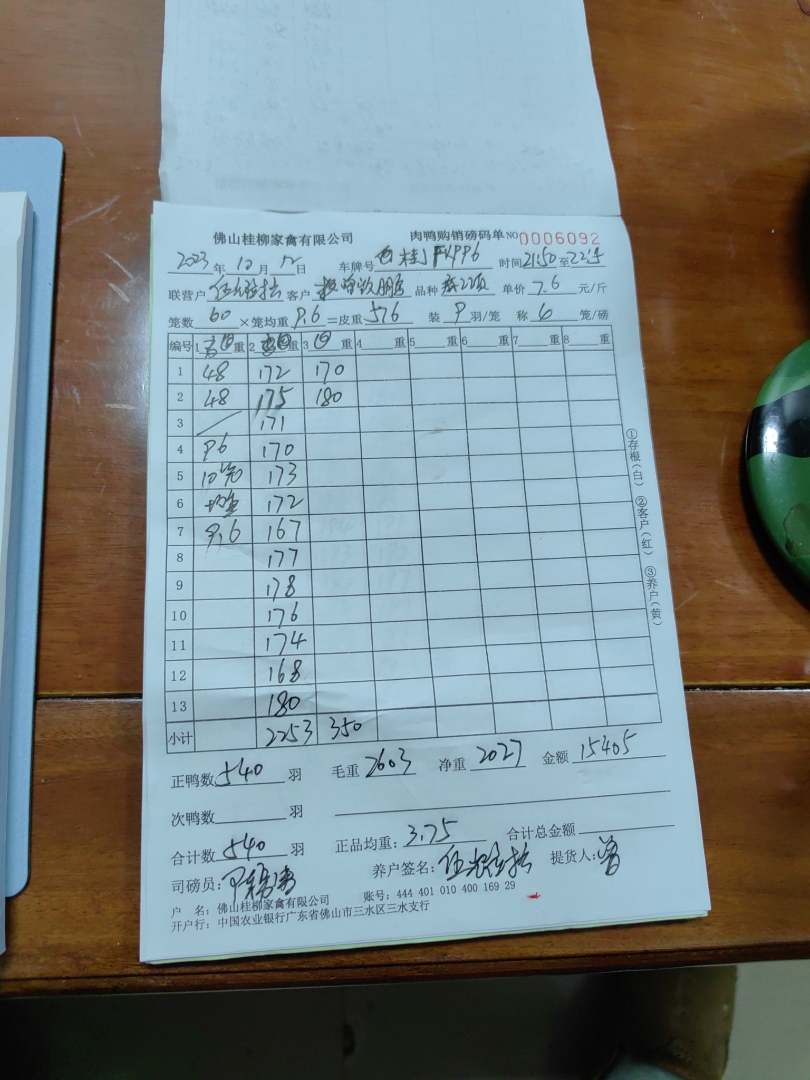 佛山桂柳家禽有限公司 肉鸭购销磅码单 NO 0006092
2023年10月12日 车牌号 时间21:50至22:15
联营户 客户 品种 单价7.6元/斤
笼数60×笼均重9.6=皮重576 装9羽/笼 称6笼/磅
编号 1 重 2 重 3 重 4 重 5 重 6 重 7 重 8 重
1 48 172 170
2 48 175 180
3 / 171
4 96 170
5 10笼 173
6 均重 172
7 9.6 167
8 177
9 178
10 176
11 174
12 168
13 180
小计 2253 350
正鸭数540羽 毛重2603 净重2027 金额15405
次鸭数 羽
合计数540羽 正品均重:3.75 合计总金额
司磅员: 养户签名: 提货人:
户 名:佛山桂柳家禽有限公司 账号:444 401 010 400 169 29
开户行:中国农业银行广东省佛山市三水区三水支行
①存根(白) ②客户(红) ③养户(黄)